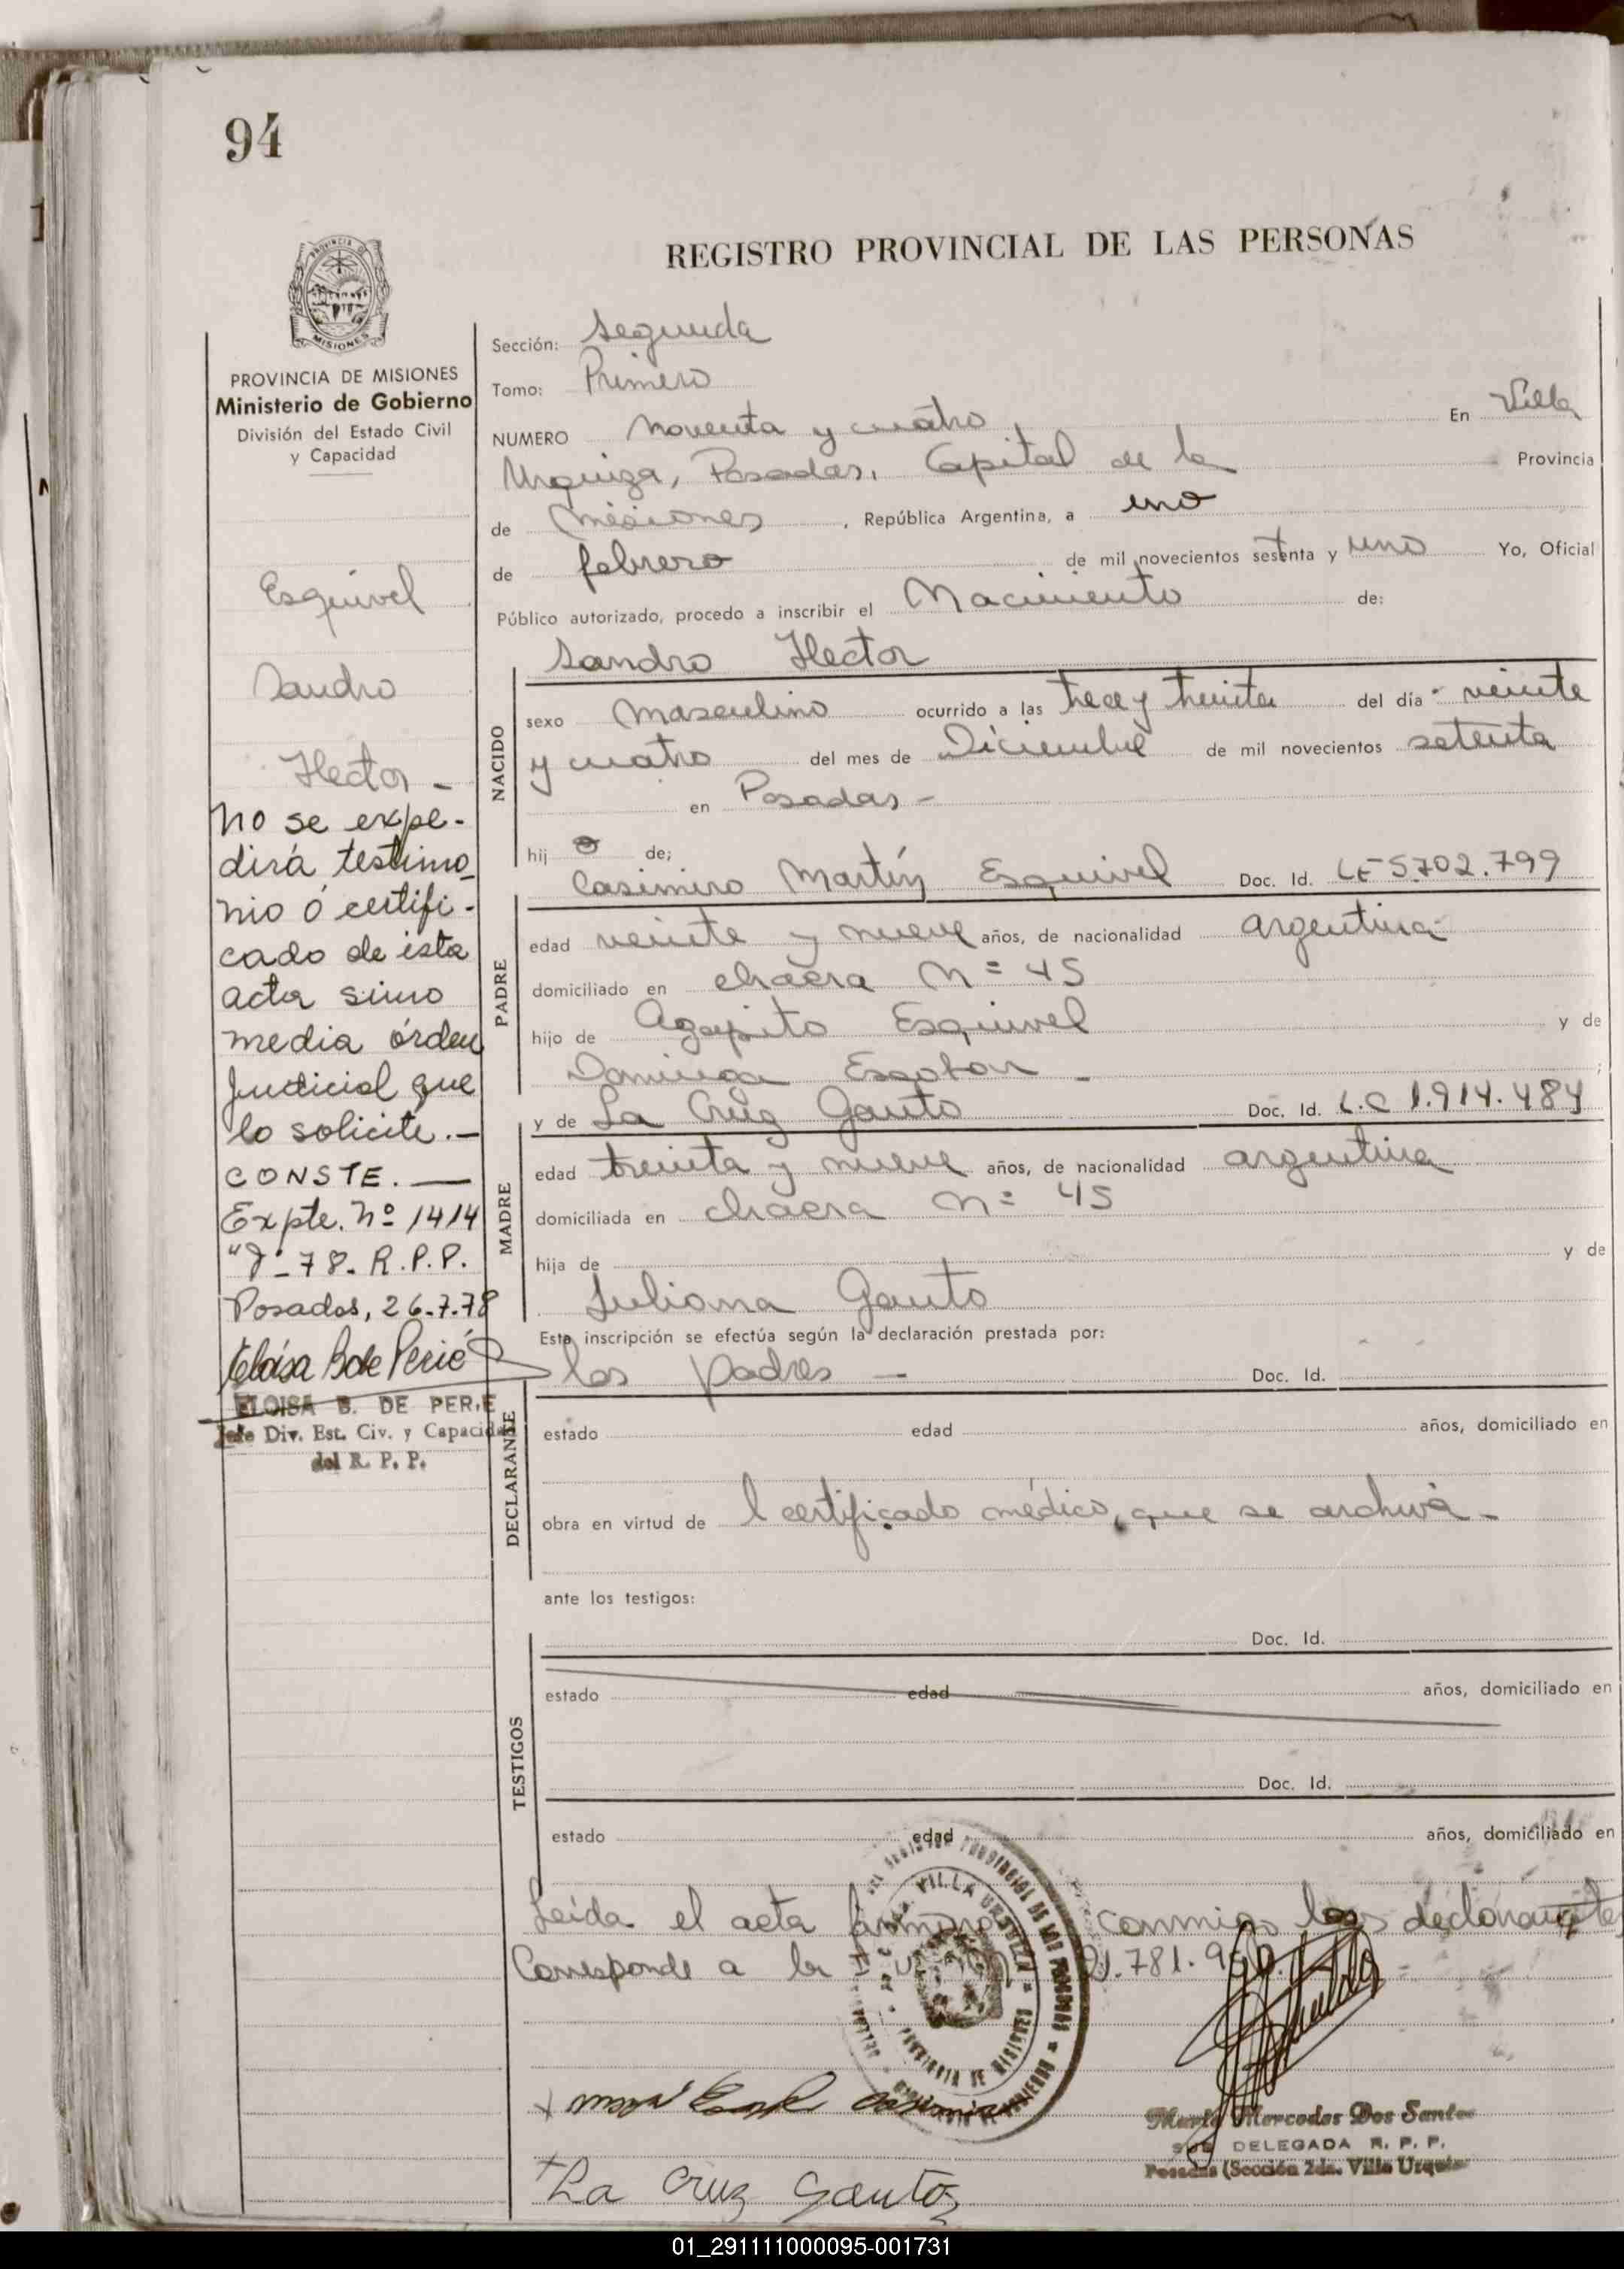 94
REGISTRO PROVINCIAL DE LAS PERSONAS
MISIONES
PROVINCIA DE MISIONES
Ministerio de Gobierno
División del Estado Civil
y Capacidad
Esquivel
Sandro
Hector -
no se expe-
dirá testimo_
nio ó certifi-
cado de esta
acta sino
media órden
Judicial que
lo solicite.-
CONSTE. —
Expte. Nº 1414
78- R.P.P.
Posadas, 26-7-78
Eloísa B de Perié
ELOISA B. DE PERIE
Jefe Div. Est. Civ. y Capacidad
del R. P. P.
Sección: Segunda
Tomo: Primero
NUMERO noventa y cuatro En Villa
Urquiza, Posadas, Capital de la Provincia
de Misiones , República Argentina, a uno
de febrero de mil novecientos setenta y uno Yo, Oficial
Público autorizado, procedo a inscribir el Nacimiento de:
Sandro Hector
NACIDO
sexo Masculino ocurrido a las trece y treinta del día veinte
y cuatro del mes de Diciembre de mil novecientos setenta
en Posadas -
hij o de;
Casimiro Martín Esquivel Doc. Id. LE 5.702.799
PADRE
edad veinte y nueve años, de nacionalidad argentina
domiciliado en chacra Nº 45
hijo de Agapito Esquivel y de
Dominga Escobar - ;
y de La Cruz Gauto Doc. Id. L.C 1.914.484
MADRE
edad treinta y nueve años, de nacionalidad argentina
domiciliada en chacra Nº 45
hija de y de
Juliana Gauto
Esta inscripción se efectúa según la declaración prestada por:
los padres — Doc. Id.
DECLARANTE
estado edad años, domiciliado en
obra en virtud de l certificado médico, que se archiva -
ante los testigos:
Doc. Id.
TESTIGOS
estado edad años, domiciliado en
Doc. Id.
estado edad años, domiciliado en
Leída el acta conmigo los declarantes
Corresponde a la
VILLA URQUIZA
PROVINCIA DE MISIONES
Maria Mercedes Dos Santos
SUB DELEGADA R. P. P.
Posadas (Sección 2da. Villa Urquiza
La Cruz Gauto
01_291111000095-001731